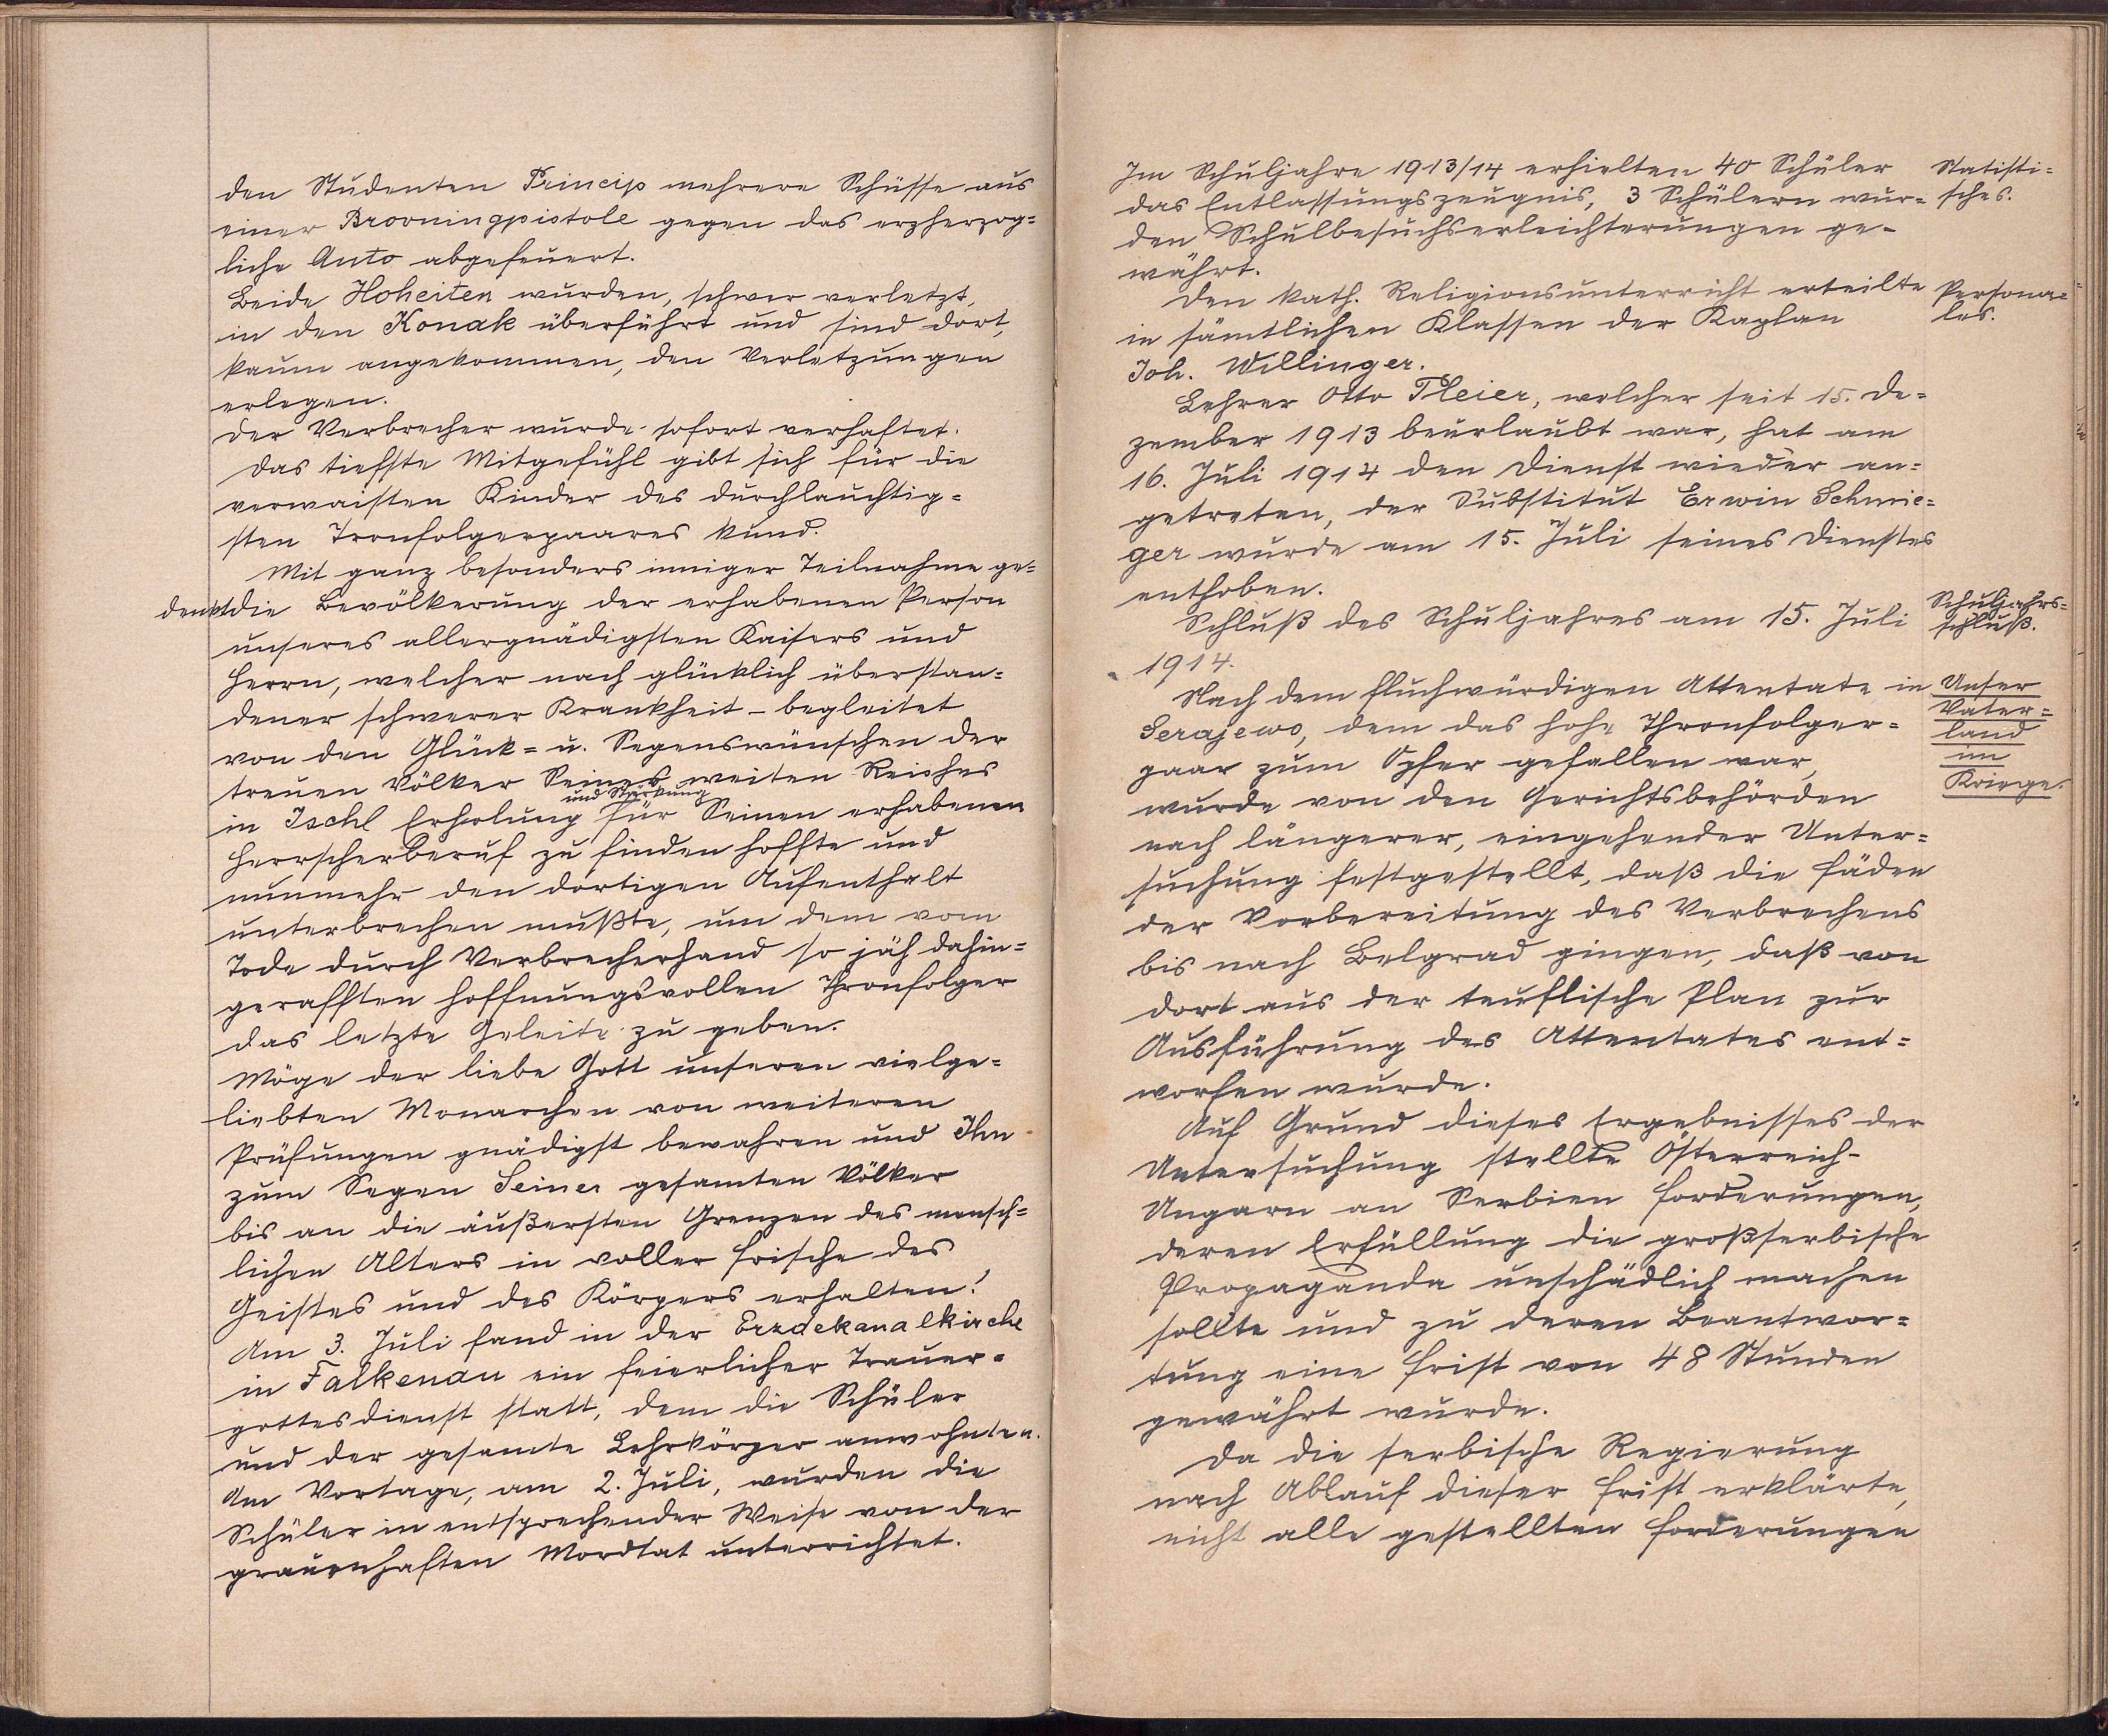 den Studenten Princip mehrere Schüsse aus
einer Brovningpistole gegen das erzherzog=
liche Auto abgefeuert.
Beide Hoheiten wurden, schwer verletzt,
in den Konak überführt und sind dort,
kaum angekommen, den Verletzungen
erlegen.
Der Verbrecher wurde sofort verhaftet.
Das tiefste Mitgefühl gibt sich für die
verwaisten Kinder des durchlauchtig=
sten Tronfolgerpaares kund.
Mit ganz besonders inniger Teilnahme ge=
denkt die Bevölkerung der erhabenen Person
unseres allergnädigsten Kaisers und
Herrn, welcher nach glücklich überstan=
dener schwerer Krankheit – begleitet
von den Glück= u. Segenswünschen der
treuen Völker Seines weiten Reiches
und Stärkung
in Ischl Erholung für Seinen erhabenen
Herrscherberuf zu finden hoffte und
nunmehr den dortigen Aufenthalt
unterbrechen mußte, um dem vom
Tode durch Verbrecherhand so jäh dahin=
gerafften hoffnungsvollen Thronfolger
das letzte Geleite zu geben.
Möge der liebe Gott unseren vielge=
liebten Monarchen von weiteren
Prüfungen gnädigst bewahren und Ihn
zum Segen Seiner gesamten Völker
bis an die äußersten Grenzen des mensch=
lichen Alters in voller Frische des
Geistes und des Körpers erhalten!
Am 3. Juli fand in der Erzdekanalkirche
in Falkenau ein feierlicher Trauer=
gottesdienst statt, dem die Schüler
und der gesamte Lehrkörper anwohnten.
Am Vortage, am 2. Juli, wurden die
Schüler in entsprechender Weise von der
grauenhaften Mordtat unterrichtet.
Im Schuljahre 1913/14 erhielten 40 Schüler
das Entlassungszeugnis, 3 Schülern wur=
den Schulbesuchserleichterungen ge-
währt.
Statisti=
sches.
Den kath. Religionsunterricht erteilte
in sämtlichen Klassen der Kaplan
Joh. Willinger.
Persona=
les.
Lehrer Otto Pleier, welcher seit 15. De=
zember 1913 beurlaubt war, hat am
16. Juli 1914 den Dienst wieder an=
getreten, der Substitut Erwin Schmie=
ger wurde am 15. Juli seines Dienstes
enthoben.
Schluß des Schuljahres am 15. Juli
1914.
Schuljahrs=
schluß.
Nach dem fluchwürdigen Attentate in
Serajewo, dem das hohe Thronfolger=
paar zum Opfer gefallen war,
wurde von den Gerichtsbehörden
Unser
Vater=
land
im
Kriege.
nach längerer, eingehender Unter=
suchung festgestellt, daß die Fäden
der Vorbereitung des Verbrechens
bis nach Belgrad gingen, daß von
dort aus der teuflische Plan zur
Ausführung des Attentates ent=
worfen wurde.
Auf Grund dieses Ergebnisses der
Untersuchung stellte Österreich-
Ungarn an Serbien Forderungen,
deren Erfüllung die großserbische
Propaganda unschädlich machen
sollte und zu deren Beantwor=
tung eine Frist von 48 Stunden
gewährt wurde.
Da die serbische Regierung
nach Ablauf dieser Frist erklärte,
nicht alle gestellten Forderungen